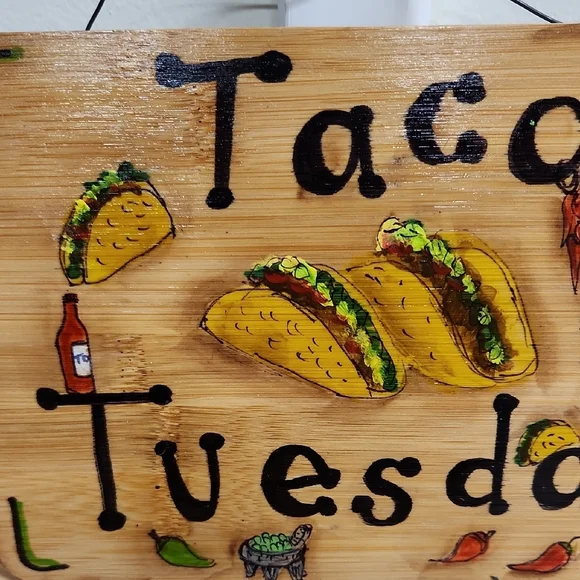 Taco
Tuesda